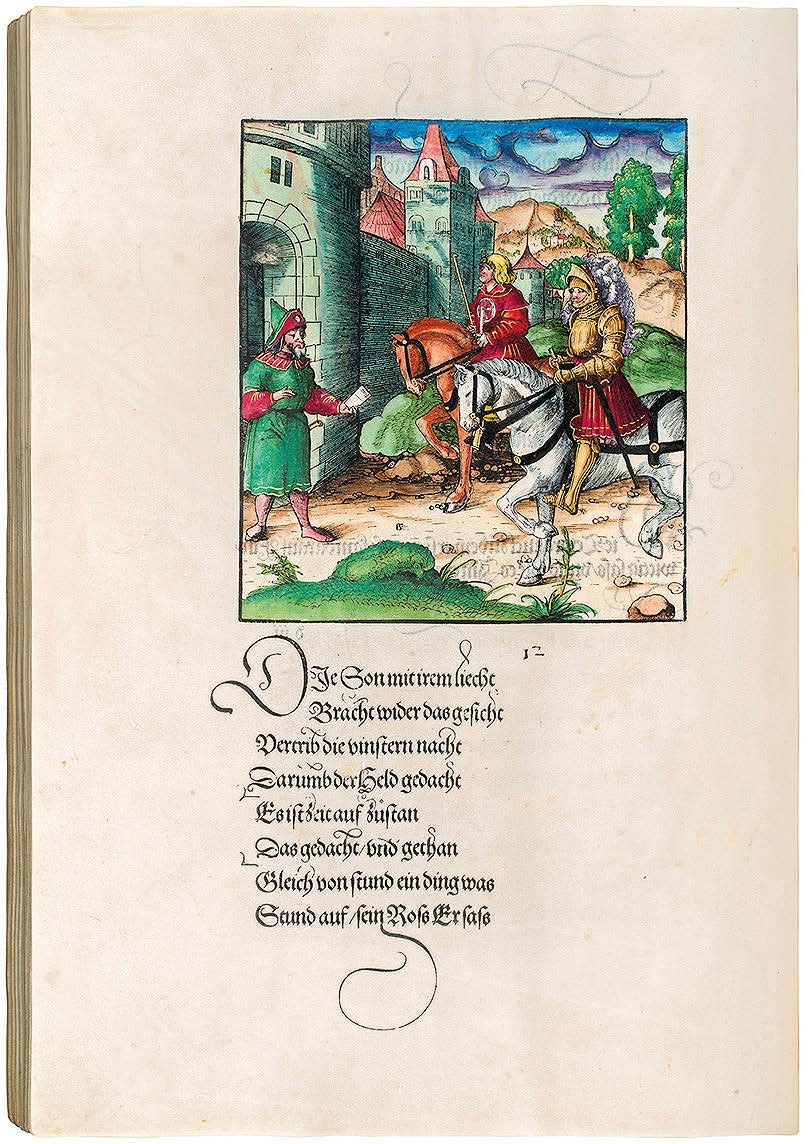 12
DJe Son mit irem liecht
Bracht wider das gesicht
Vertrib die vinstern nacht
Darumb der Held gedacht
Es ist zeit auf zůstan
Das gedacht/ vnd gethan
Gleich von stund ein ding was
Stund auf/ sein Ross Er sass